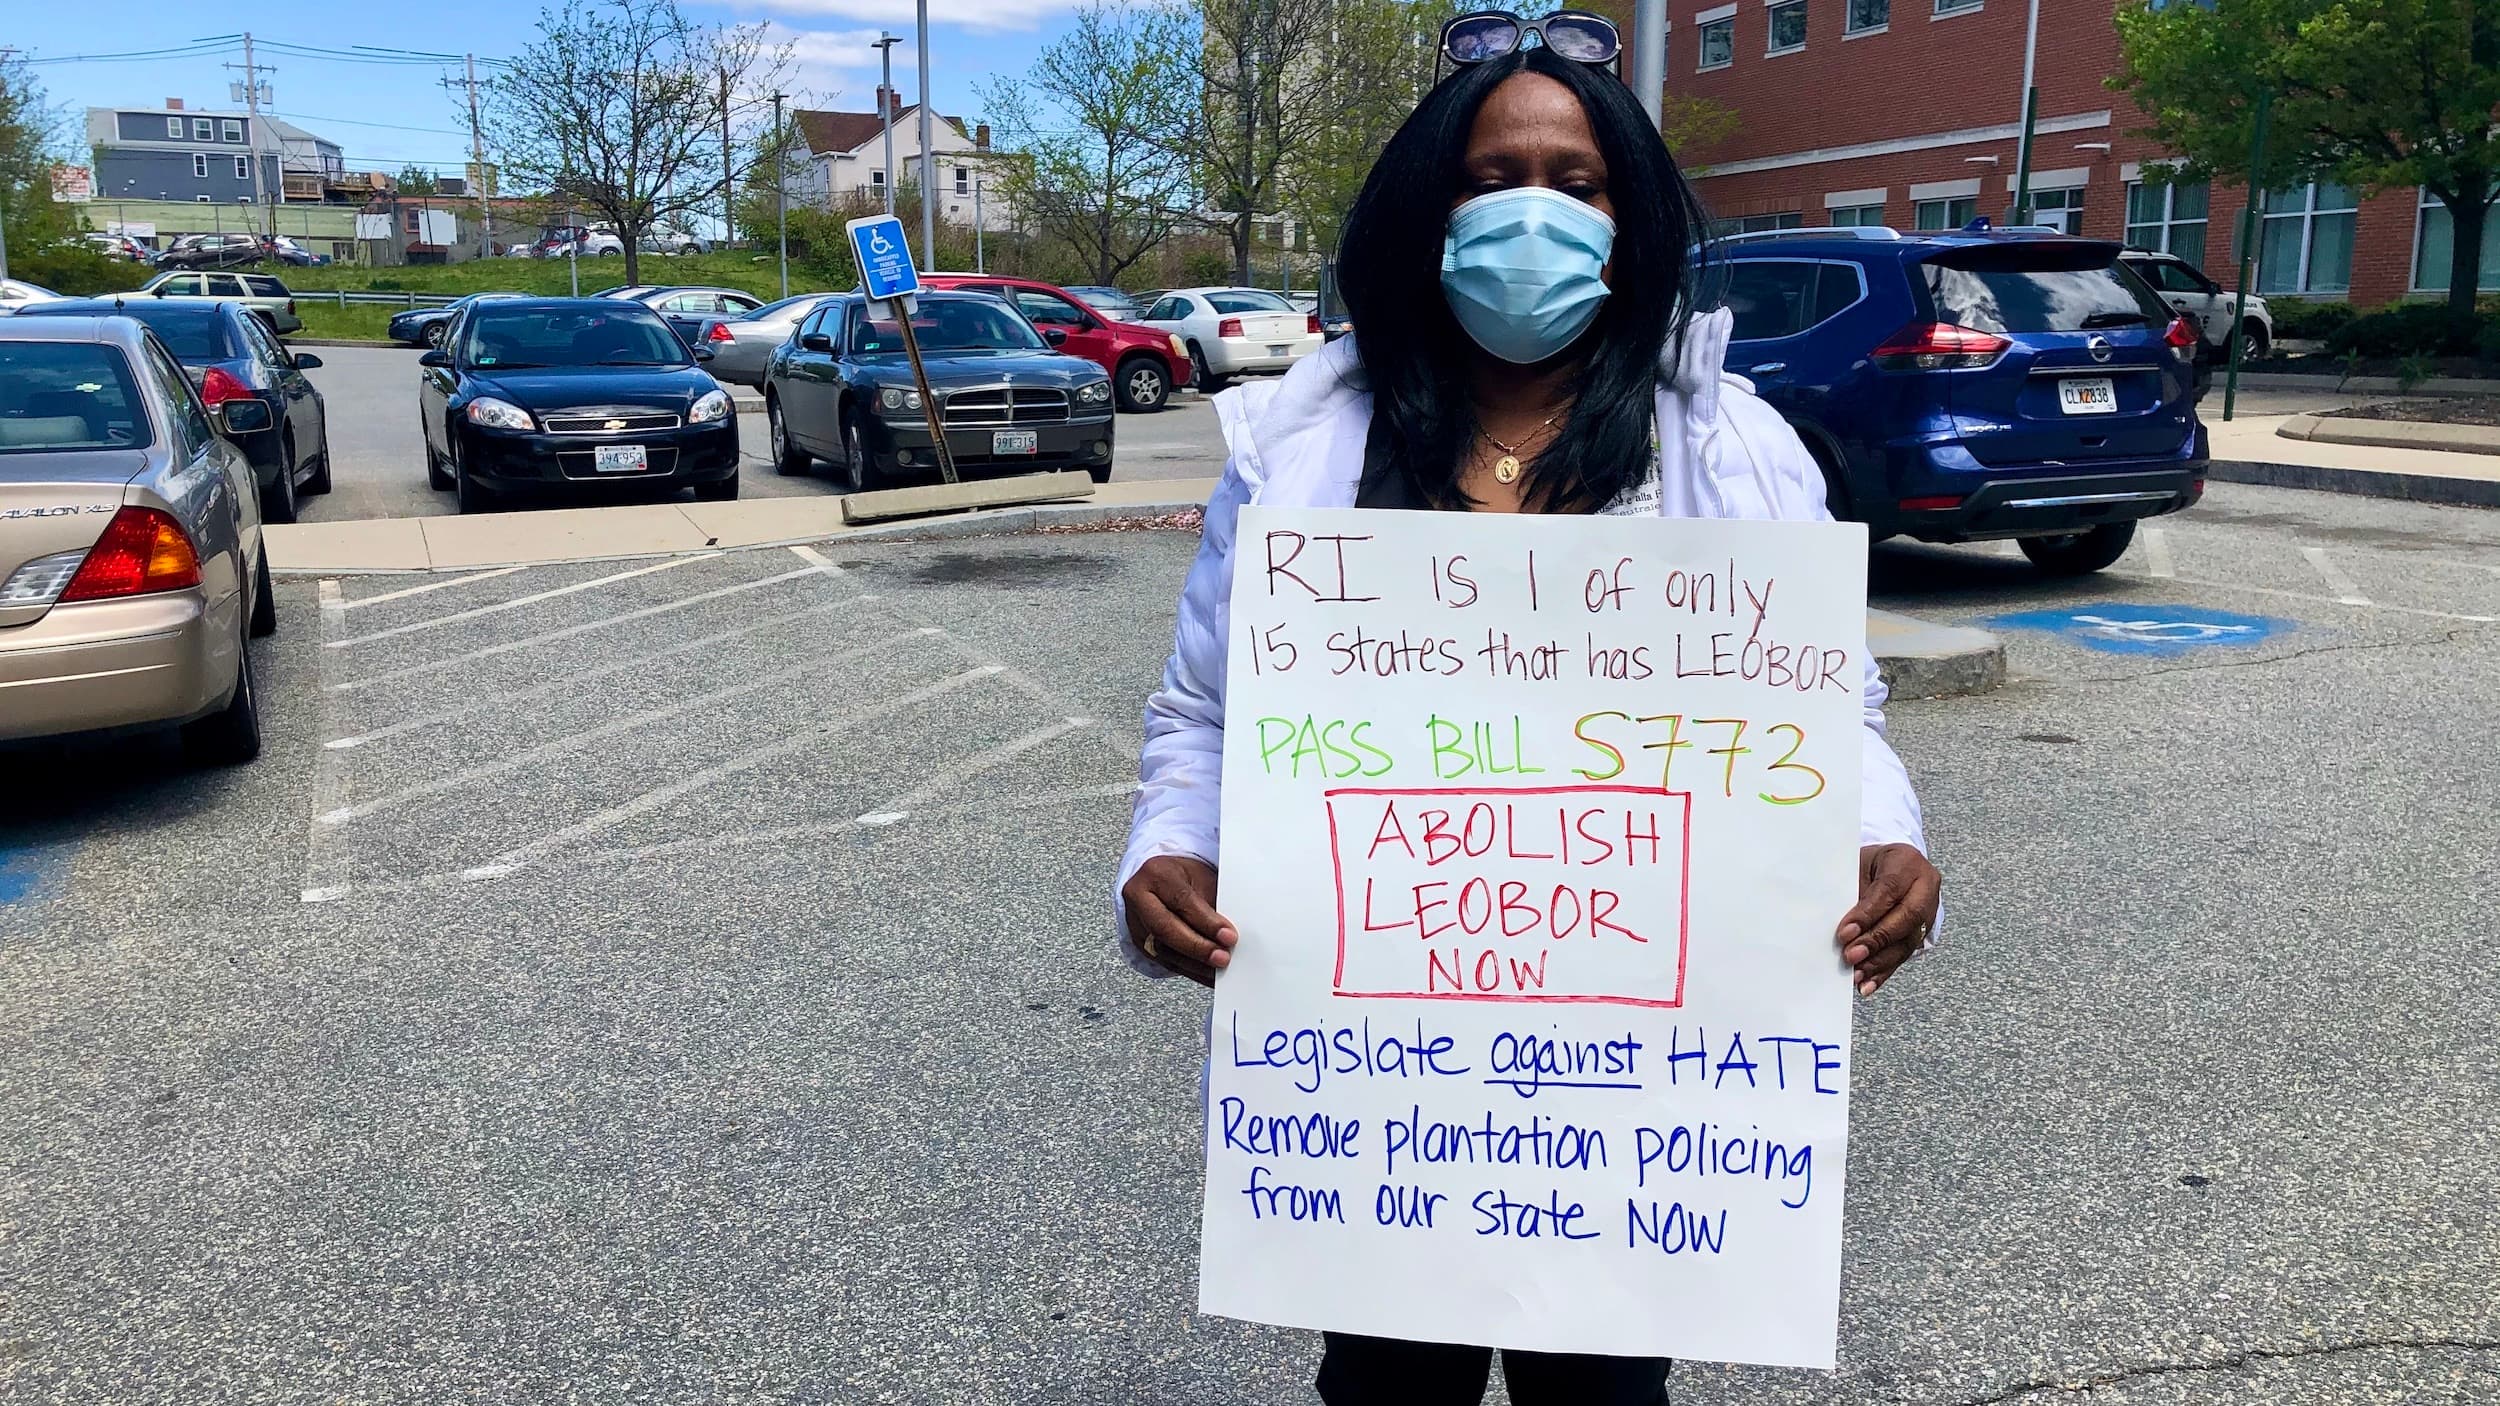 RI IS 1 of only
15 states that has LEOBOR
PASS BILL S773
ABOLISH
LEOBOR
NOW
Legislate against HATE
Remove plantation policing
from our state NOW
AVALON XLS
394·953
991·315
CLX2838
ROGUE
HANDICAPPED
PARKING
e alla
neutrale